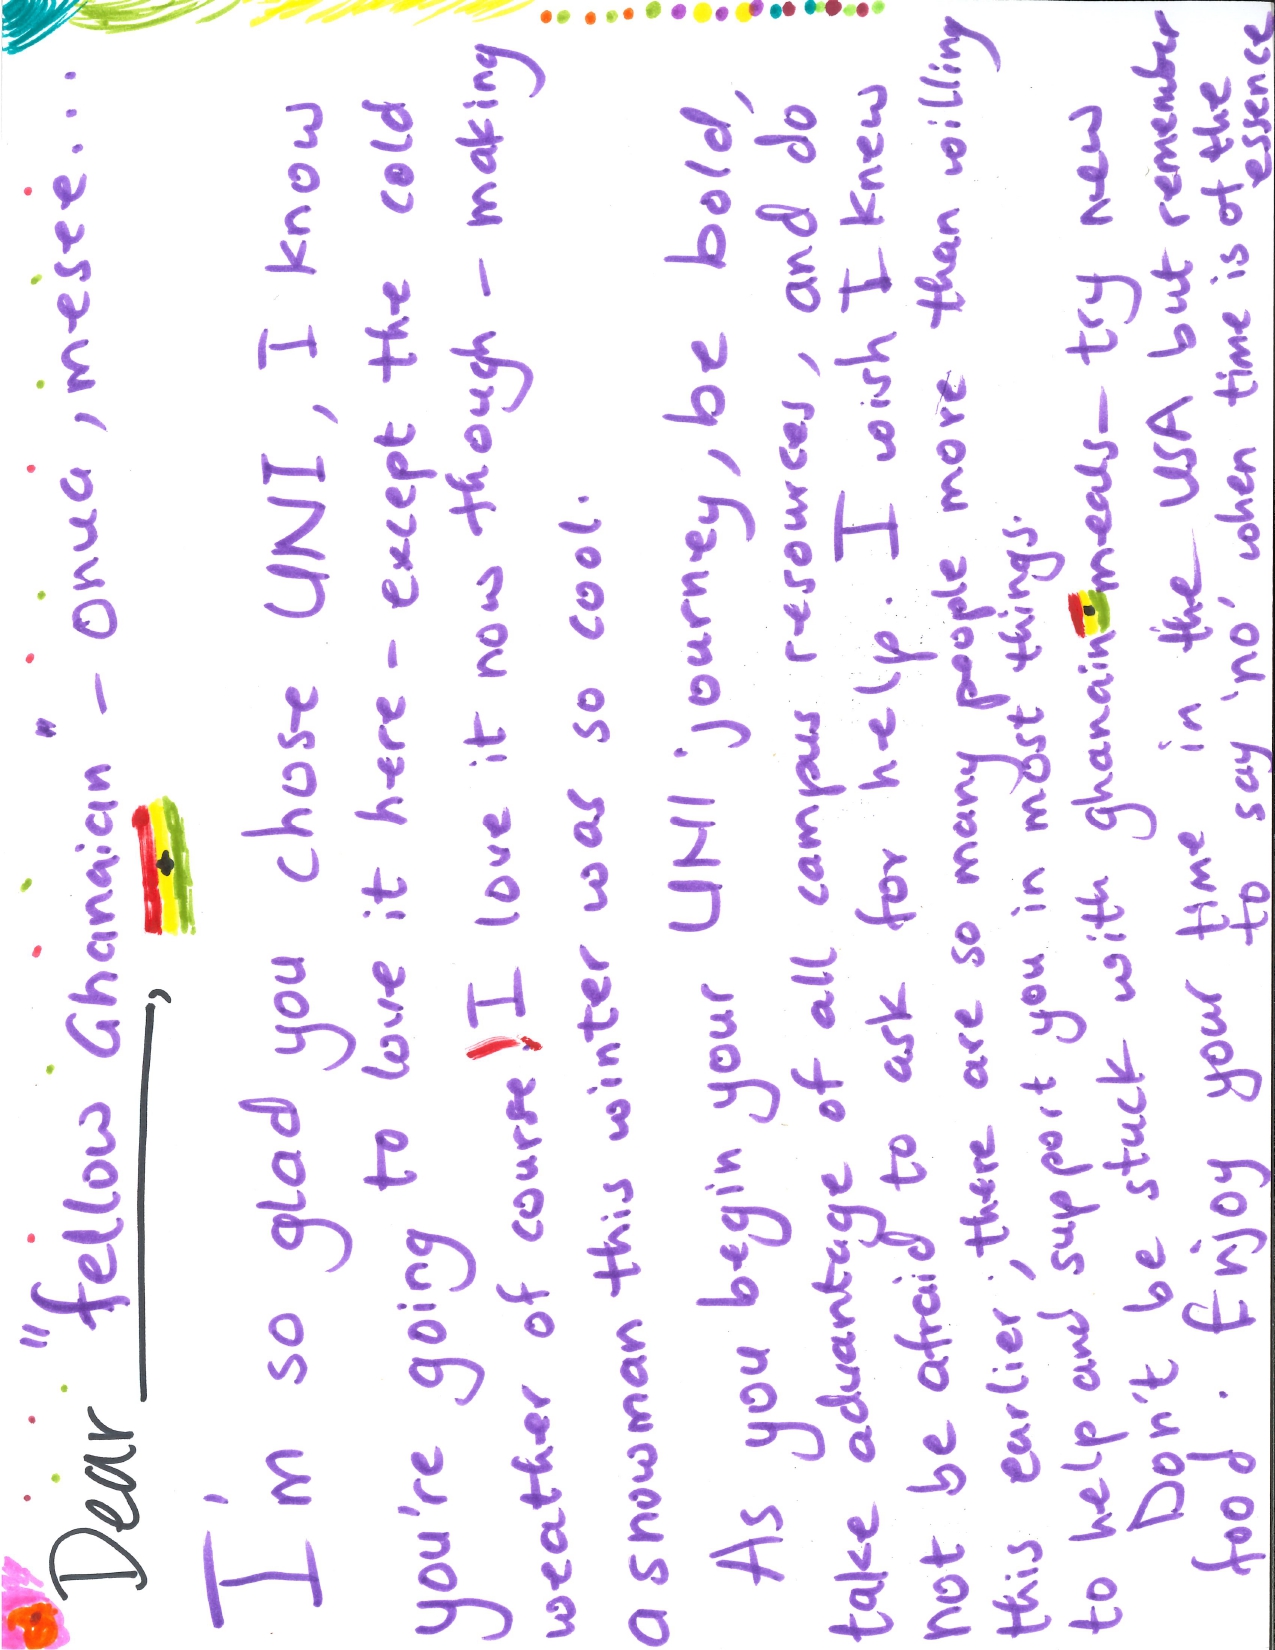 Dear "fellow Ghanaian" - Onua, mese...
I'm so glad you chose UNI, I know
you're going to love it here - except the cold
weather of course, I love it now though - making
a snowman this winter was so cool.
As you begin your UNI journey, be bold,
take advantage of all campus resources, and do
not be afraid to ask for help. I wish I knew
this earlier, there are so many people more than willing
to help and support you in most things.
Don't be stuck with ghanain meals - try new
food. Enjoy your time in the USA but remember
to say 'no' when time is of the
essence